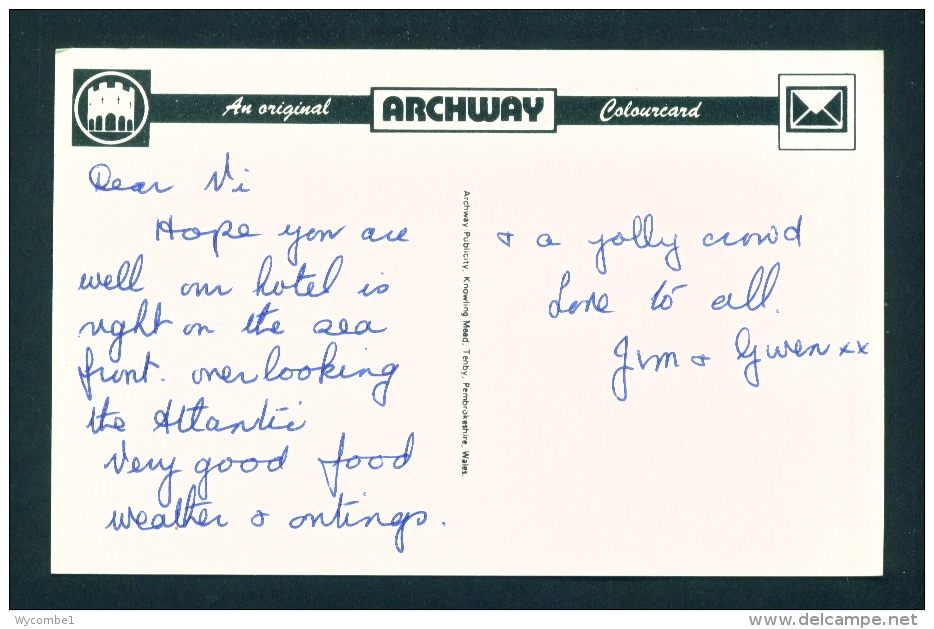 An original ARCHWAY Colourcard
Dear Vi
Hope you are
well our hotel is
right on the sea
front. overlooking
the Atlantic
Very good food
weather & outings.
& a jolly crowd
Love to all.
Jim & Gwen xx
Archway Publicity, Knowling Mead, Tenby, Pembrokeshire, Wales.
Wycombe1
delcampe.net